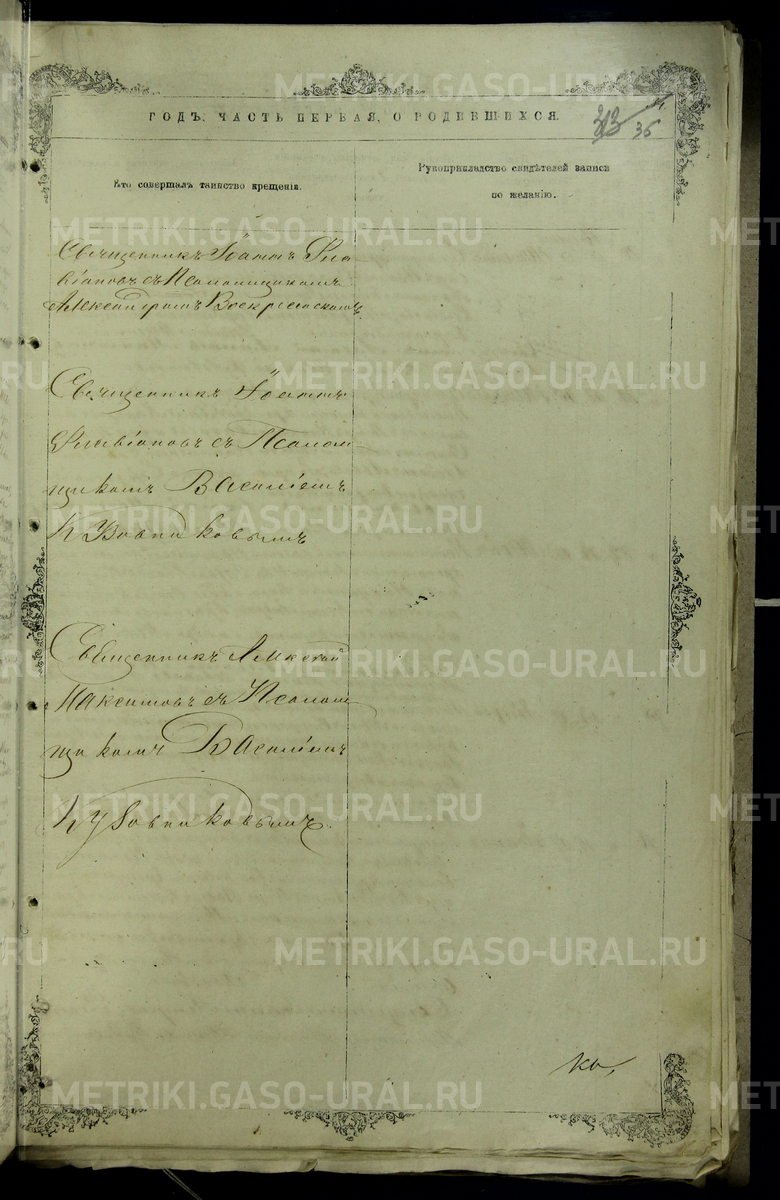 ГОДЪ, ЧАСТЬ ПЕРВАЯ, О РОДИВШИХСЯ.
36
Кто совершалъ таинство крещенія.
Рукоприкладство свидѣтелей записи
по желанію.
Священникъ Іоаннъ Фла
віановъ съ Псаломщикомъ
Александромъ Воскресенскимъ
Священникъ Іоаннъ
Флавіановъ съ Псалом-
щикомъ Василіемъ
Кузовниковымъ
Священникъ Алексѣй
Максимовъ съ Псалом
щикомъ Василіемъ
Кузовниковымъ.
METRIKI.GASO-URAL.RU